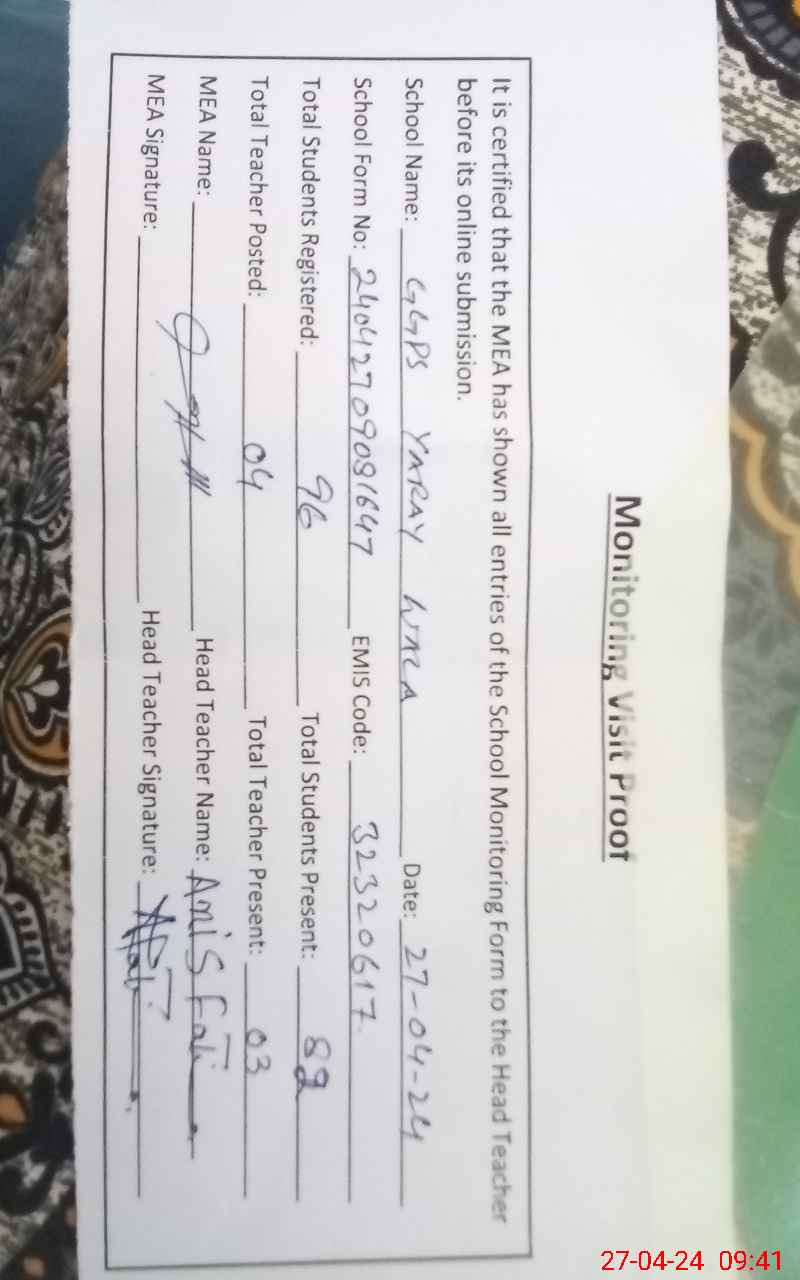 Monitoring Visit Proof
It is certified that the MEA has shown all entries of the School Monitoring Form to the Head Teacher
before its online submission.
School Name: GGPS YARAY WALA Date: 27-04-24
School Form No: 24042709081647 EMIS Code: 32320617
Total Students Registered: 96 Total Students Present: 82
Total Teacher Posted: 04 Total Teacher Present: 03
MEA Name: Head Teacher Name: Anis
MEA Signature: Head Teacher Signature:
27-04-24 09:41